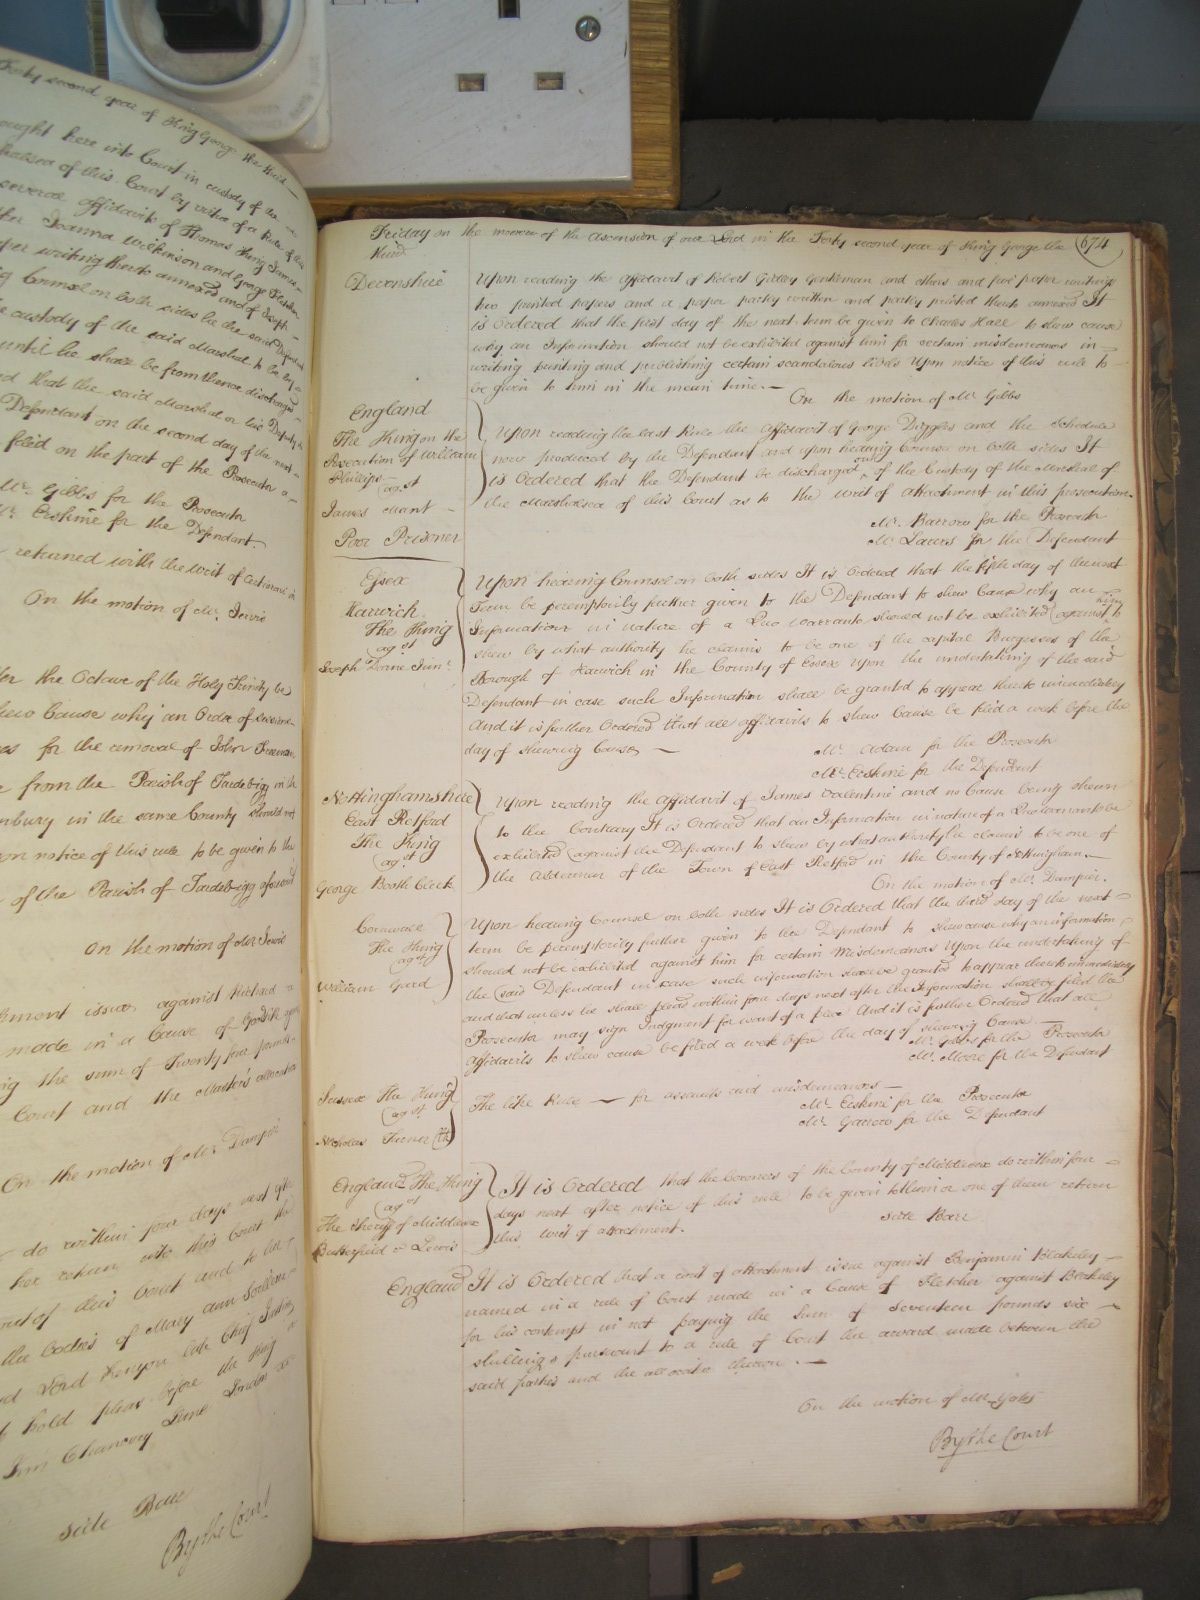 Forty second year of King George the third
ought here into Court in custody of the
halsea of this Court by virtue of a Rule of this
several affidavits of Thomas King James
Joanna Wilkinson and George Fletcher
per writing thereto annexed and of Joseph
g Counsel on both sides let the said Defendant
e custody of the said Marshal to be by
until he shall be from thence discharged
d that the said Marshal or his Deputy do
Defendant on the second day of the next
filed on the part of the Prosecutor
Mr. Gibbs for the Prosecutor
Mr. Erskine for the Defendant.
returned with the writ of Certiorari
On the motion of Mr. Jervis
the Octave of the Holy Trinity be
hew Cause why an Order of
as for the removal of John
e from the Parish of Tardebigg in the
nbury in the same County should not
on notice of this rule to be given to the
of the Parish of Tardebigg aforesaid
On the motion of Mr Jervis
ment issue against Richard
made in a Cause of
ng the sum of Twenty four pounds
Court and the Master's allocatur
On the motion of Mr Dampier
do within four days next after
her return into this Court the
out of this Court and to
the bodies of Mary Ann
d Lord Kenyon late Chief Justice
hold pleas before the King
Inn Chancery Lane London
Side Barr
By the Court
Friday on the morrow of the Ascension of our Lord in the Forty second year of King George the 674
third
Devonshire Upon reading the affidavit of Robert Gidley Gentleman and others and five paper writings
two printed papers and a paper partly written and partly printed thereto annexed It
is Ordered that the first day of the next term be given to Charles Hall to shew cause
why an Information should not be exhibited against him for certain misdemeanors in
writing printing and publishing certain scandalous libels Upon notice of this rule to
be given to him in the mean time.
On the motion of Mr Gibbs
England
The King on the Upon reading the last Rule the affidavit of George Diggles and the Schedule
Prosecution of William now produced by the Defendant and upon hearing Counsel on both sides It
Phillips is Ordered that the Defendant be discharged out of the Custody of the Marshal of
agst the Marshalsea of this Court as to the writ of attachment in this prosecution.
James Mant
Mr. Barrow for the Prosecutor
Poor Prisoner Mr. Lawes for the Defendant
Essex Upon hearing Counsel on both sides It is Ordered that the fifth day of the next
Harwich Term be peremptorily further given to the Defendant to shew Cause why an
The King Information in nature of a Quo Warranto should not be exhibited against him to
agst shew by what authority he claims to be one of the capital Burgesses of the
Joseph Deane Junr. Borough of Harwich in the County of Essex Upon the undertaking of the said
Defendant in case such Information shall be granted to appear thereto immediately
And it is further Ordered that all affidavits to shew Cause be filed a week before the
day of shewing Cause
Mr. Adam for the Prosecutor
Mr. Erskine for the Defendant
Nottinghamshire Upon reading the affidavit of James Valentini and no Cause being shewn
East Retford to the Contrary It is Ordered that an Information in nature of a Quo warranto be
The King exhibited against the Defendant to shew by what authority he claims to be one of
agst the Aldermen of the Town of East Retford in the County of Nottingham.
George Booth Clerk On the motion of Mr. Dampier.
Cornwall Upon hearing Counsel on both sides It is Ordered that the third day of the next
The King term be peremptorily further given to the Defendant to shew cause why an information
agst should not be exhibited against him for certain Misdemeanors Upon the undertaking of
William Gard the said Defendant in case such information shall be granted to appear thereto immediately
and that unless he shall plead within four days next after the Information shall be filed the
Prosecutor may sign Judgment for want of a plea And it is further Ordered that all
affidavits to shew cause be filed a week before the day of shewing Cause
Mr. Gibbs for the Prosecutor
Mr. Moore for the Defendant
Sussex The King The like Rule for assaults and misdemeanors
agst Mr. Erskine for the Prosecutor
Nicholas Turner Mr. Garrow for the Defendant
England The King It is Ordered that the Coroners of the County of Middlesex do within four
agst days next after notice of this rule to be given to them or one of them return
The Sheriff of Middlesex this writ of attachment. Side Barr
Butterfield v Lewis
England It is Ordered that a writ of attachment issue against Benjamin Blakeley
named in a rule of Court made in a Cause of Fletcher against Blakeley
for his contempt in not paying the Sum of Seventeen pounds six
shillings pursuant to a rule of Court the award made between the
said parties and the allocatur thereon.
On the motion of Mr Yates
By the Court